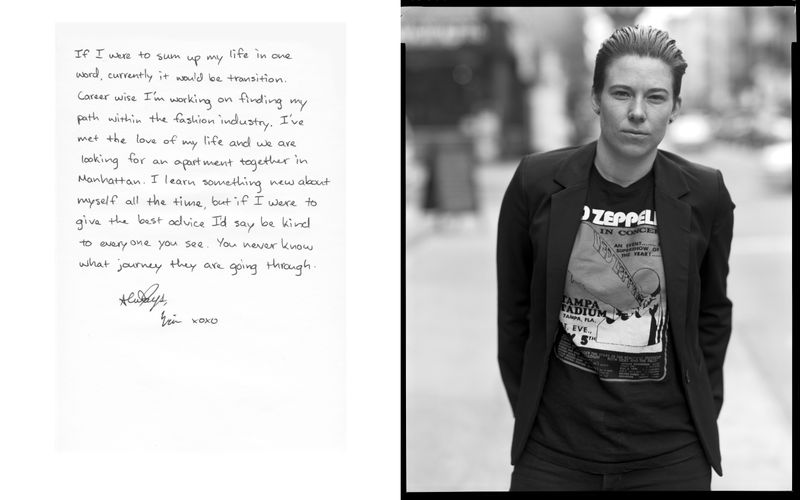 If I were to sum up my life in one
word, currently it would be transition.
Career wise I'm working on finding my
path within the fashion industry. I've
met the love of my life and we are
looking for an apartment together in
Manhattan. I learn something new about
myself all the time, but if I were to
give the best advice I'd say be kind
to everyone you see. You never know
what journey they are going through.
Always,
Erin xoxo
D ZEPPEL
IN CONCER
AN EVENT.....
SUPERSHOW OF
THE YEAR!....
TAMPA
TADIUM
TAMPA, FLA.
T. EVE.,
5TH